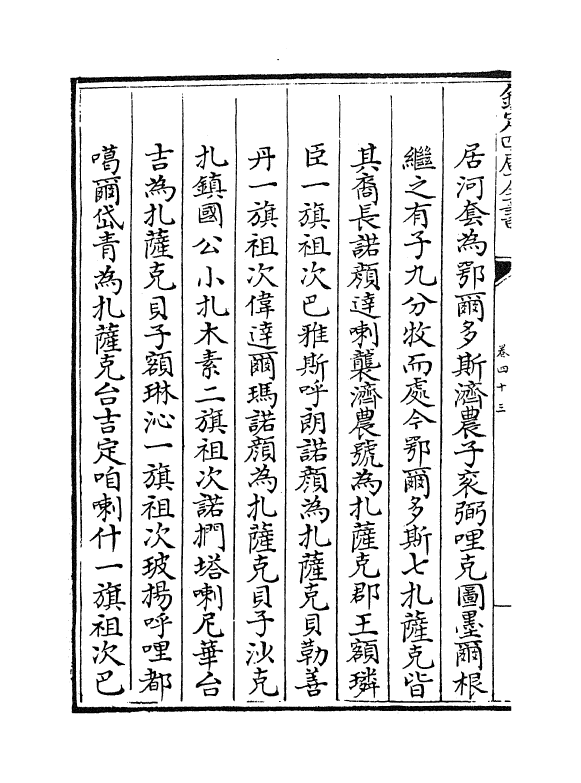 欽定四庫全書
卷四十三
居河套為鄂爾多斯濟農子袞弼哩克圖墨爾根
繼之有子九分牧而處今鄂爾多斯七扎薩克皆
其裔長諾顏達喇襲濟農號為扎薩克郡王額璘
臣一旗祖次巴雅斯呼朗諾顏為扎薩克貝勒善
丹一旗祖次偉達爾瑪諾顏為扎薩克貝子沙克
扎鎮國公小扎木素二旗祖次諾捫塔喇尼華台
吉為扎薩克貝子額琳沁一旗祖次玻揚呼哩都
噶爾岱青為扎薩克台吉定咱喇什一旗祖次巴